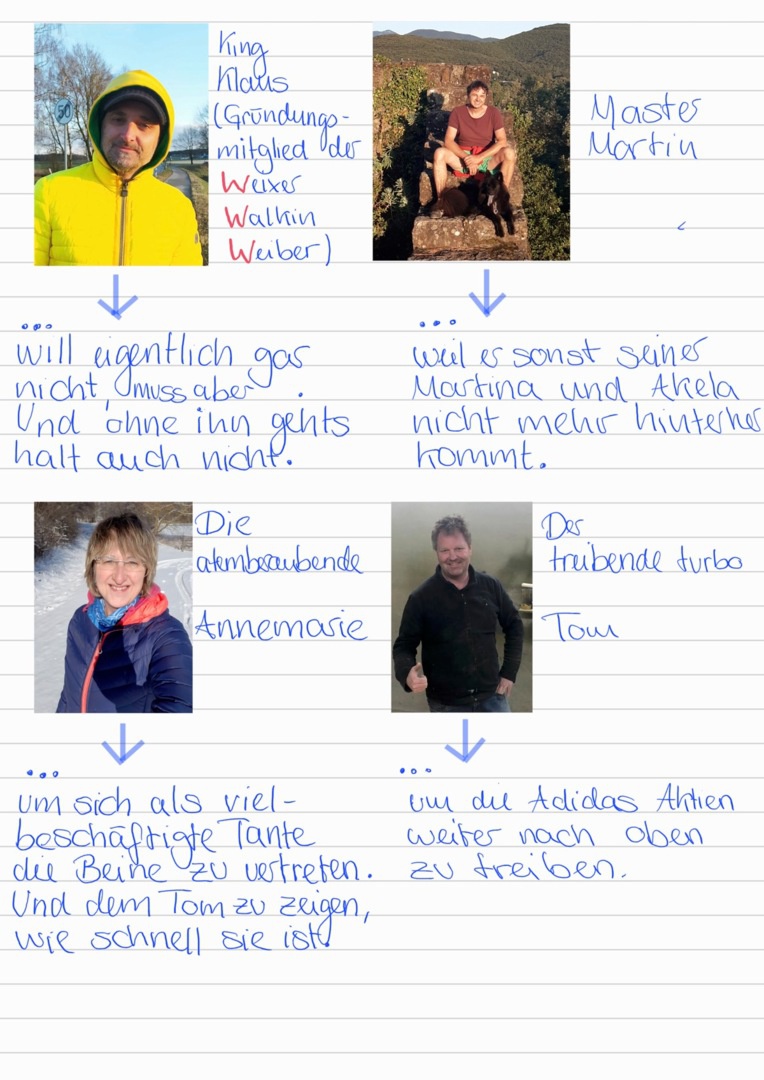 50
King
Klaus
(Gründungs-
mitglied der
Weixer
Walkin
Weiber)
Master
Martin
...
will eigentlich gar
nicht, muss aber.
Und ohne ihn gehts
halt auch nicht.
...
weil er sonst seiner
Martina und Akela
nicht mehr hinterher
kommt.
Die
atemberaubende
Annemarie
Der
treibende turbo
Tom
...
um sich als viel-
beschäftigte Tante
die Beine zu vertreten.
Und dem Tom zu zeigen,
wie schnell sie ist.
...
um die Adidas Aktien
weiter nach oben
zu treiben.